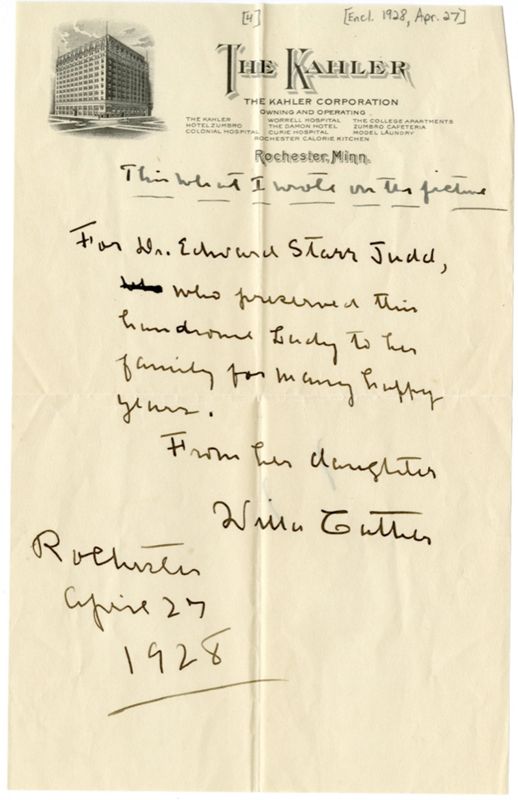 [4]
[Encl. 1928, Apr. 27]
THE KAHLER
THE KAHLER CORPORATION
OWNING AND OPERATING
THE KAHLER WORRELL HOSPITAL THE COLLEGE APARTMENTS
HOTEL ZUMBRO THE DAMON HOTEL ZUMBRO CAFETERIA
COLONIAL HOSPITAL CURIE HOSPITAL MODEL LAUNDRY
ROCHESTER CALORIE KITCHEN
Rochester, Minn.
This what I wrote on the picture
For Dr. Edward Starr Judd,
who preserved this
handsome Lady to her
family for many happy
years.
From her daughter
Willa Cather
Rochester
April 27
1928